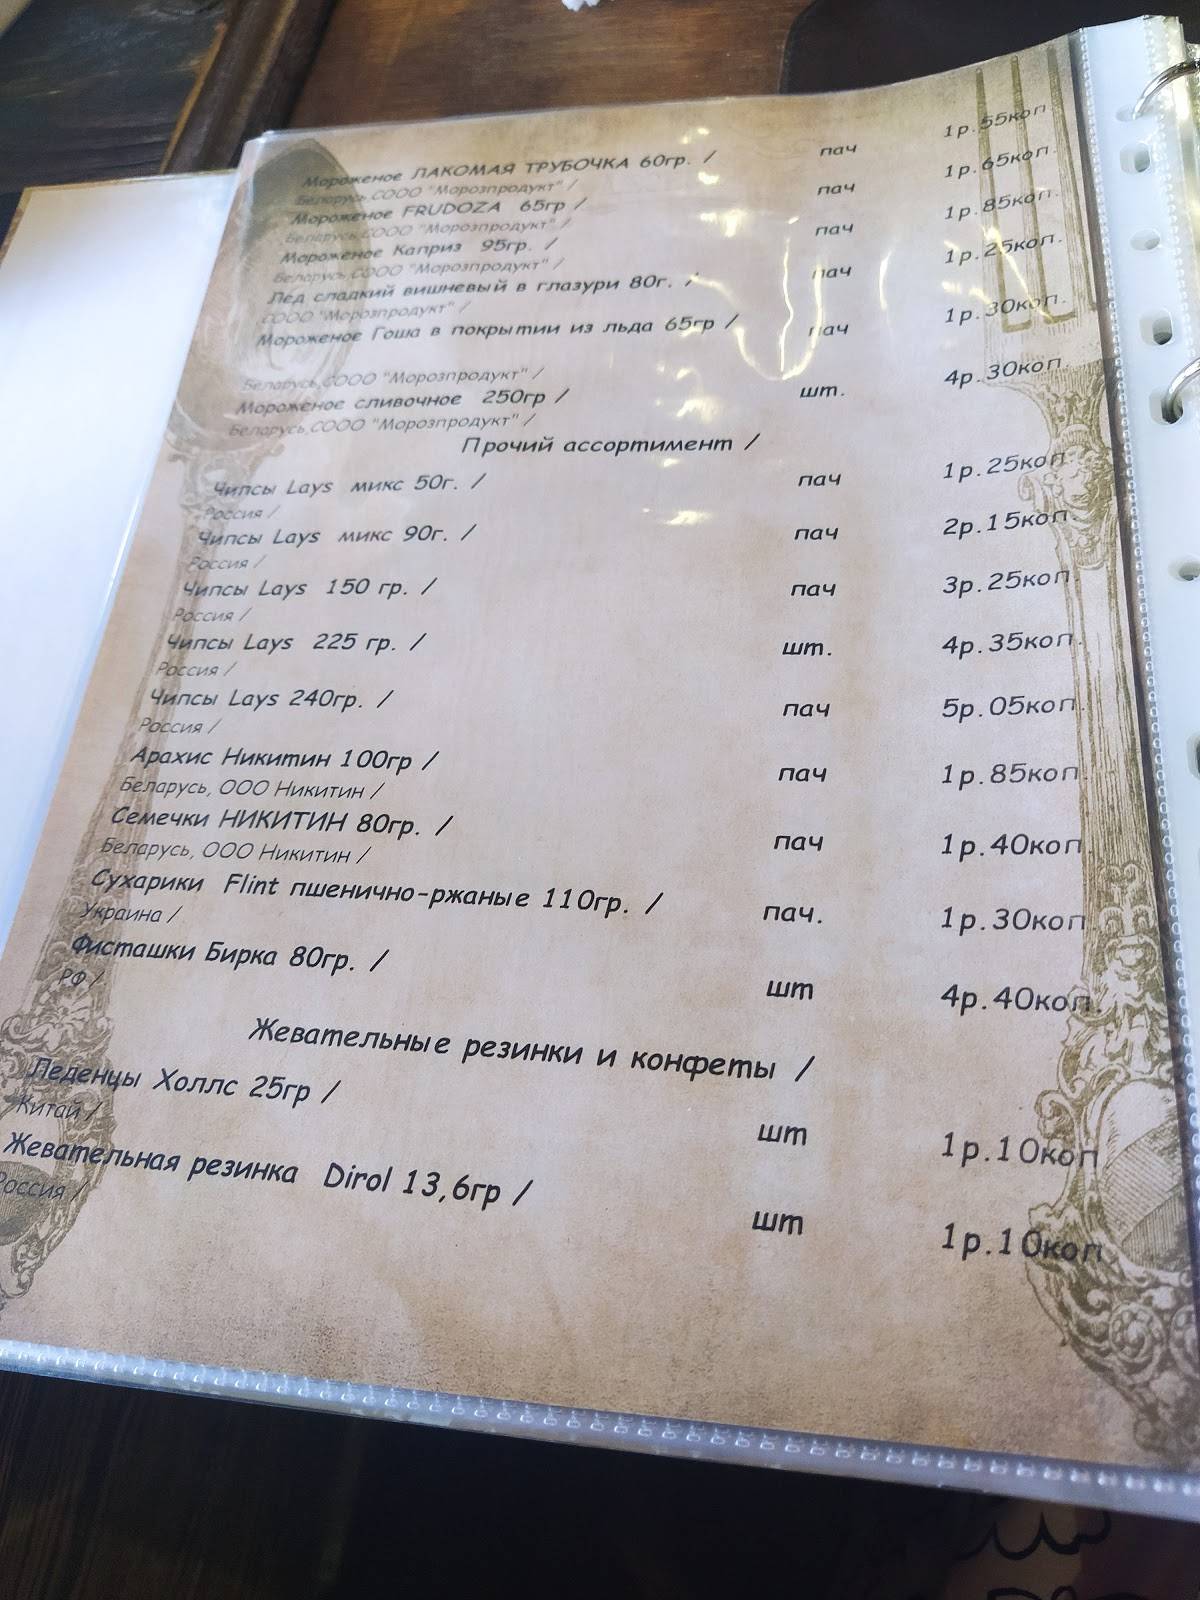 Мороженое ЛАКОМАЯ ТРУБОЧКА 60гр. / пач 1р.55коп.
Беларусь,СООО "Морозпродукт" /
Мороженое FRUDOZA 65гр / пач 1р.65коп.
Беларусь,СООО "Морозпродукт" /
Мороженое Каприз 95гр. / пач 1р.85коп.
Беларусь,СООО "Морозпродукт" /
Лед сладкий вишневый в глазури 80г. / пач 1р.25коп.
СООО "Морозпродукт" /
Мороженое Гоша в покрытии из льда 65гр / пач 1р.30коп.
Беларусь,СООО "Морозпродукт" /
Мороженое сливочное 250гр / шт. 4р.30коп.
Беларусь,СООО "Морозпродукт" /
Прочий ассортимент /
Чипсы Lays микс 50г. / пач 1р.25коп.
Россия /
Чипсы Lays микс 90г. / пач 2р.15коп.
Россия /
Чипсы Lays 150 гр. / пач 3р.25коп.
Россия /
Чипсы Lays 225 гр. / шт. 4р.35коп.
Россия /
Чипсы Lays 240гр. / пач 5р.05коп.
Россия /
Арахис Никитин 100гр / пач 1р.85коп.
Беларусь, ООО Никитин /
Семечки НИКИТИН 80гр. / пач 1р.40коп.
Беларусь, ООО Никитин /
Сухарики Flint пшенично-ржаные 110гр. / пач. 1р.30коп.
Украина /
Фисташки Бирка 80гр. / шт 4р.40коп.
РФ /
Жевательные резинки и конфеты /
Леденцы Холлс 25гр / шт 1р.10коп
Китай /
Жевательная резинка Dirol 13,6гр / шт 1р.10коп
Россия /